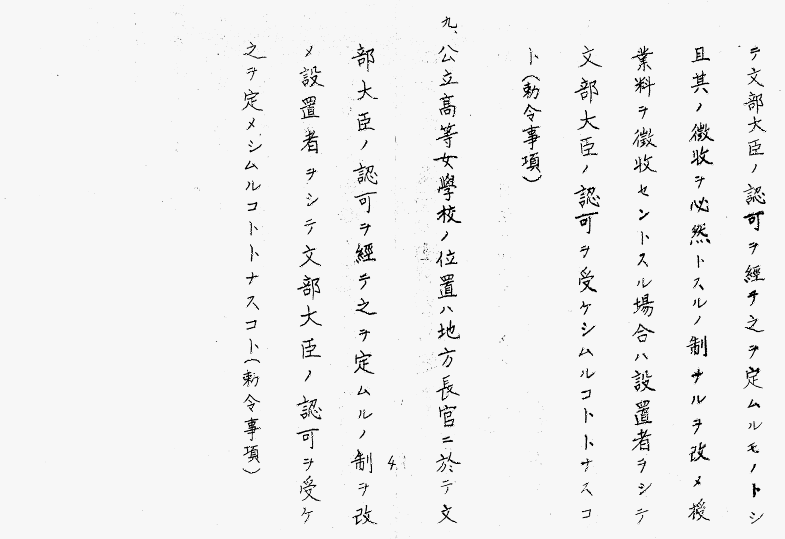 テ文部大臣ノ認可ヲ經テ之ヲ定ムルモノトシ
且其ノ徴收ヲ必然トスルノ制ナルヲ改メ授
業料ヲ徴收セントスル場合ハ設置者ヲシテ
文部大臣ノ認可ヲ受ケシムルコトトナスコ
ト(勅令事項)
九、公立高等女學校ノ位置ハ地方長官ニ於テ文
部大臣ノ認可ヲ經テ之ヲ定ムルノ制ヲ改
メ設置者ヲシテ文部大臣ノ認可ヲ受ケ
之ヲ定メシムルコトトナスコト(勅令事項)
4.